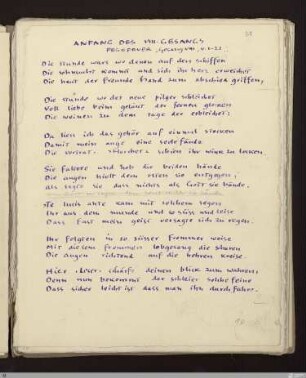 ANFANG DES VIII GESANGS
FEGFEUER
Die stunde wars wo denen auf den schiffen
Die wehmut kommt und sich ihr herz erweichet
Die heut der freunde hand zum abschied griffen,
Die stunde wo der neue pilger schleichet
Voll liebe beim geläut der fernen glocken
Die weinen zu dem tage der erbleichet:
Da liess ich das gehör auf einmal stocken
Damit mein auge eine seele fände
Die vortrat
Sie faltete und hob die beiden hände
Die augen hielt dem osten sie entgegen,
als sage sie dass nichts als Gott sie bände.
Te lucis ante kam mit solchem segen
Ihr aus dem munde und so süss und leise
Dass fast mein geist versagte sich zu regen.
Ihr folgten in so süsser frommer weise
Mit diesem frommen lobgesang die scharen
Die augen richtend auf die hohren kreise.
Hier · leser · schärfe deinen blick zum wahren:
Denn nun bekommt der schleier solche feine
Dass sicher leicht ist dass man ihn durchfahre.